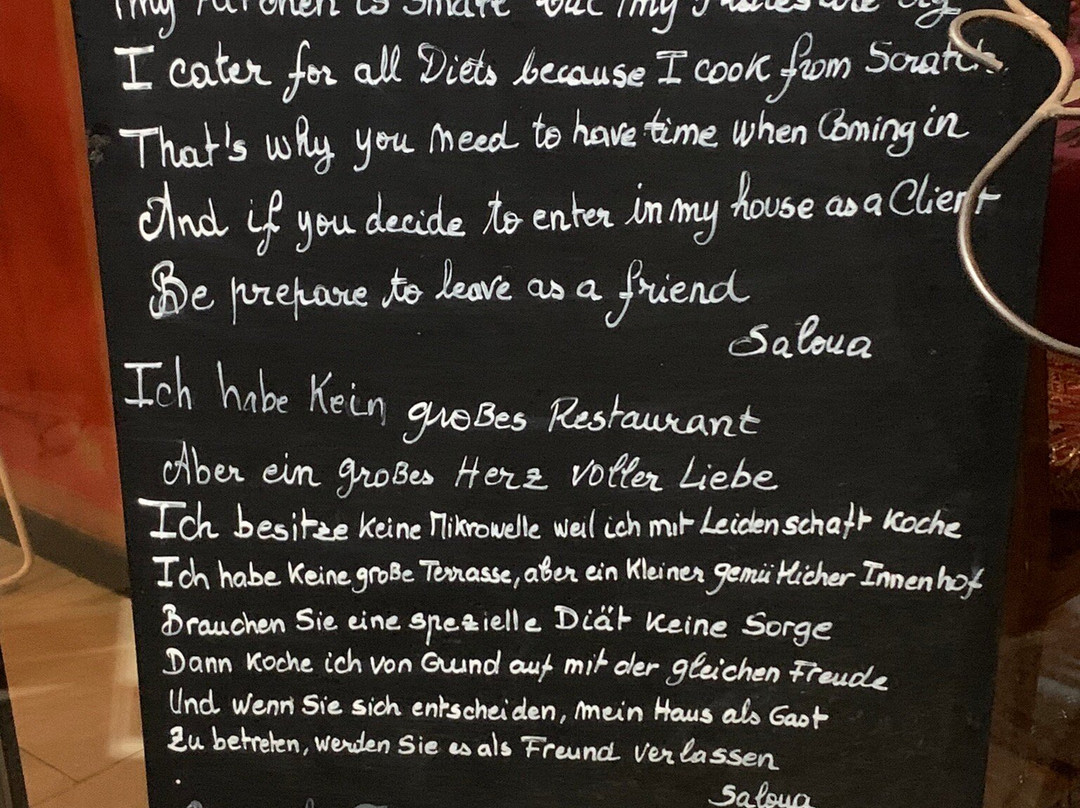 my Kitchen is small but my
I cater for all Diets because I cook from Scratch
That's why you need to have time when Coming in
And if you decide to enter in my house as a Client
Be prepare to leave as a friend
Saloua
Ich habe Kein großes Restaurant
Aber ein großes Herz voller Liebe
Ich besitze Keine Mikrowelle weil ich mit Leidenschaft Koche
Ich habe Keine große Terrasse, aber ein Kleiner gemütlicher Innenhof
Brauchen Sie eine spezielle Diät Keine Sorge
Dann Koche ich von Grund auf mit der gleichen Freude
Und wenn Sie sich entscheiden, mein Haus als Gast
Zu betreten, werden Sie es als Freund verlassen
.
Saloua